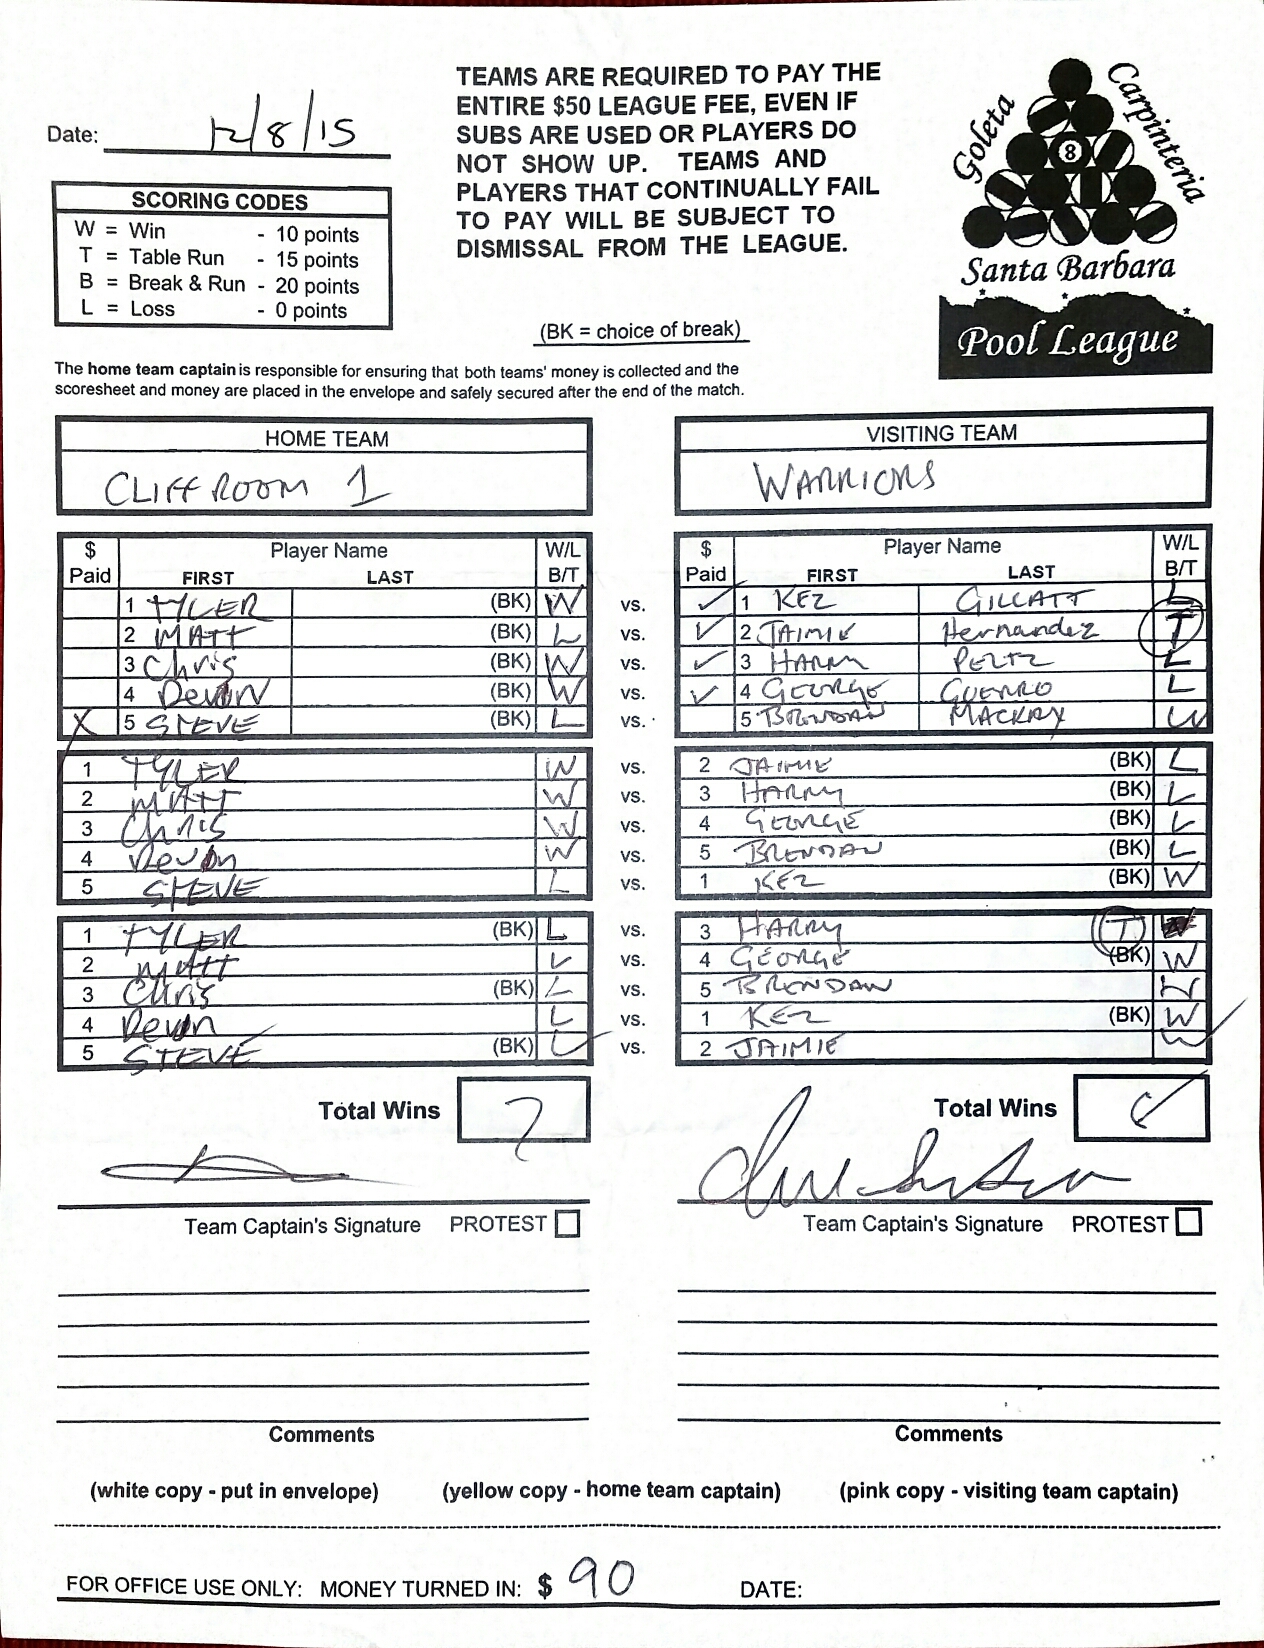 Date: 12/8/15
TEAMS ARE REQUIRED TO PAY THE
ENTIRE $50 LEAGUE FEE, EVEN IF
SUBS ARE USED OR PLAYERS DO
NOT SHOW UP. TEAMS AND
PLAYERS THAT CONTINUALLY FAIL
TO PAY WILL BE SUBJECT TO
DISMISSAL FROM THE LEAGUE.
Goleta
Carpinteria
8
Santa Barbara
Pool League
SCORING CODES
W = Win - 10 points
T = Table Run - 15 points
B = Break & Run - 20 points
L = Loss - 0 points
(BK = choice of break)
The home team captain is responsible for ensuring that both teams' money is collected and the
scoresheet and money are placed in the envelope and safely secured after the end of the match.
HOME TEAM
CLIFF ROOM 1
VISITING TEAM
WARRIORS
$ Player Name W/L $ Player Name W/L
Paid FIRST LAST B/T Paid FIRST LAST B/T
1 TYLER (BK) W vs. ✓ 1 KEZ GILLATT L
2 MATT (BK) L vs. ✓ 2 JAIMIE Hernandez T
3 Chris (BK) W vs. ✓ 3 HARRY PELTZ L
4 Devon (BK) W vs. ✓ 4 GEORGE GUERRO L
X 5 STEVE (BK) L vs. 5 BRENDAN MACKAY W
1 TYLER W vs. 2 JAIMIE (BK) L
2 MATT W vs. 3 HARRY (BK) L
3 Chris W vs. 4 GEORGE (BK) L
4 Devon W vs. 5 BRENDAN (BK) L
5 STEVE L vs. 1 KEZ (BK) W
1 TYLER (BK) L vs. 3 HARRY T
2 MATT L vs. 4 GEORGE (BK) W
3 Chris (BK) L vs. 5 BRENDAN W
4 Devon L vs. 1 KEZ (BK) W
5 STEVE (BK) L vs. 2 JAIMIE W
Total Wins 7
Total Wins
Team Captain's Signature PROTEST
Team Captain's Signature PROTEST
Comments
Comments
(white copy - put in envelope) (yellow copy - home team captain) (pink copy - visiting team captain)
FOR OFFICE USE ONLY: MONEY TURNED IN: $ 90 DATE: